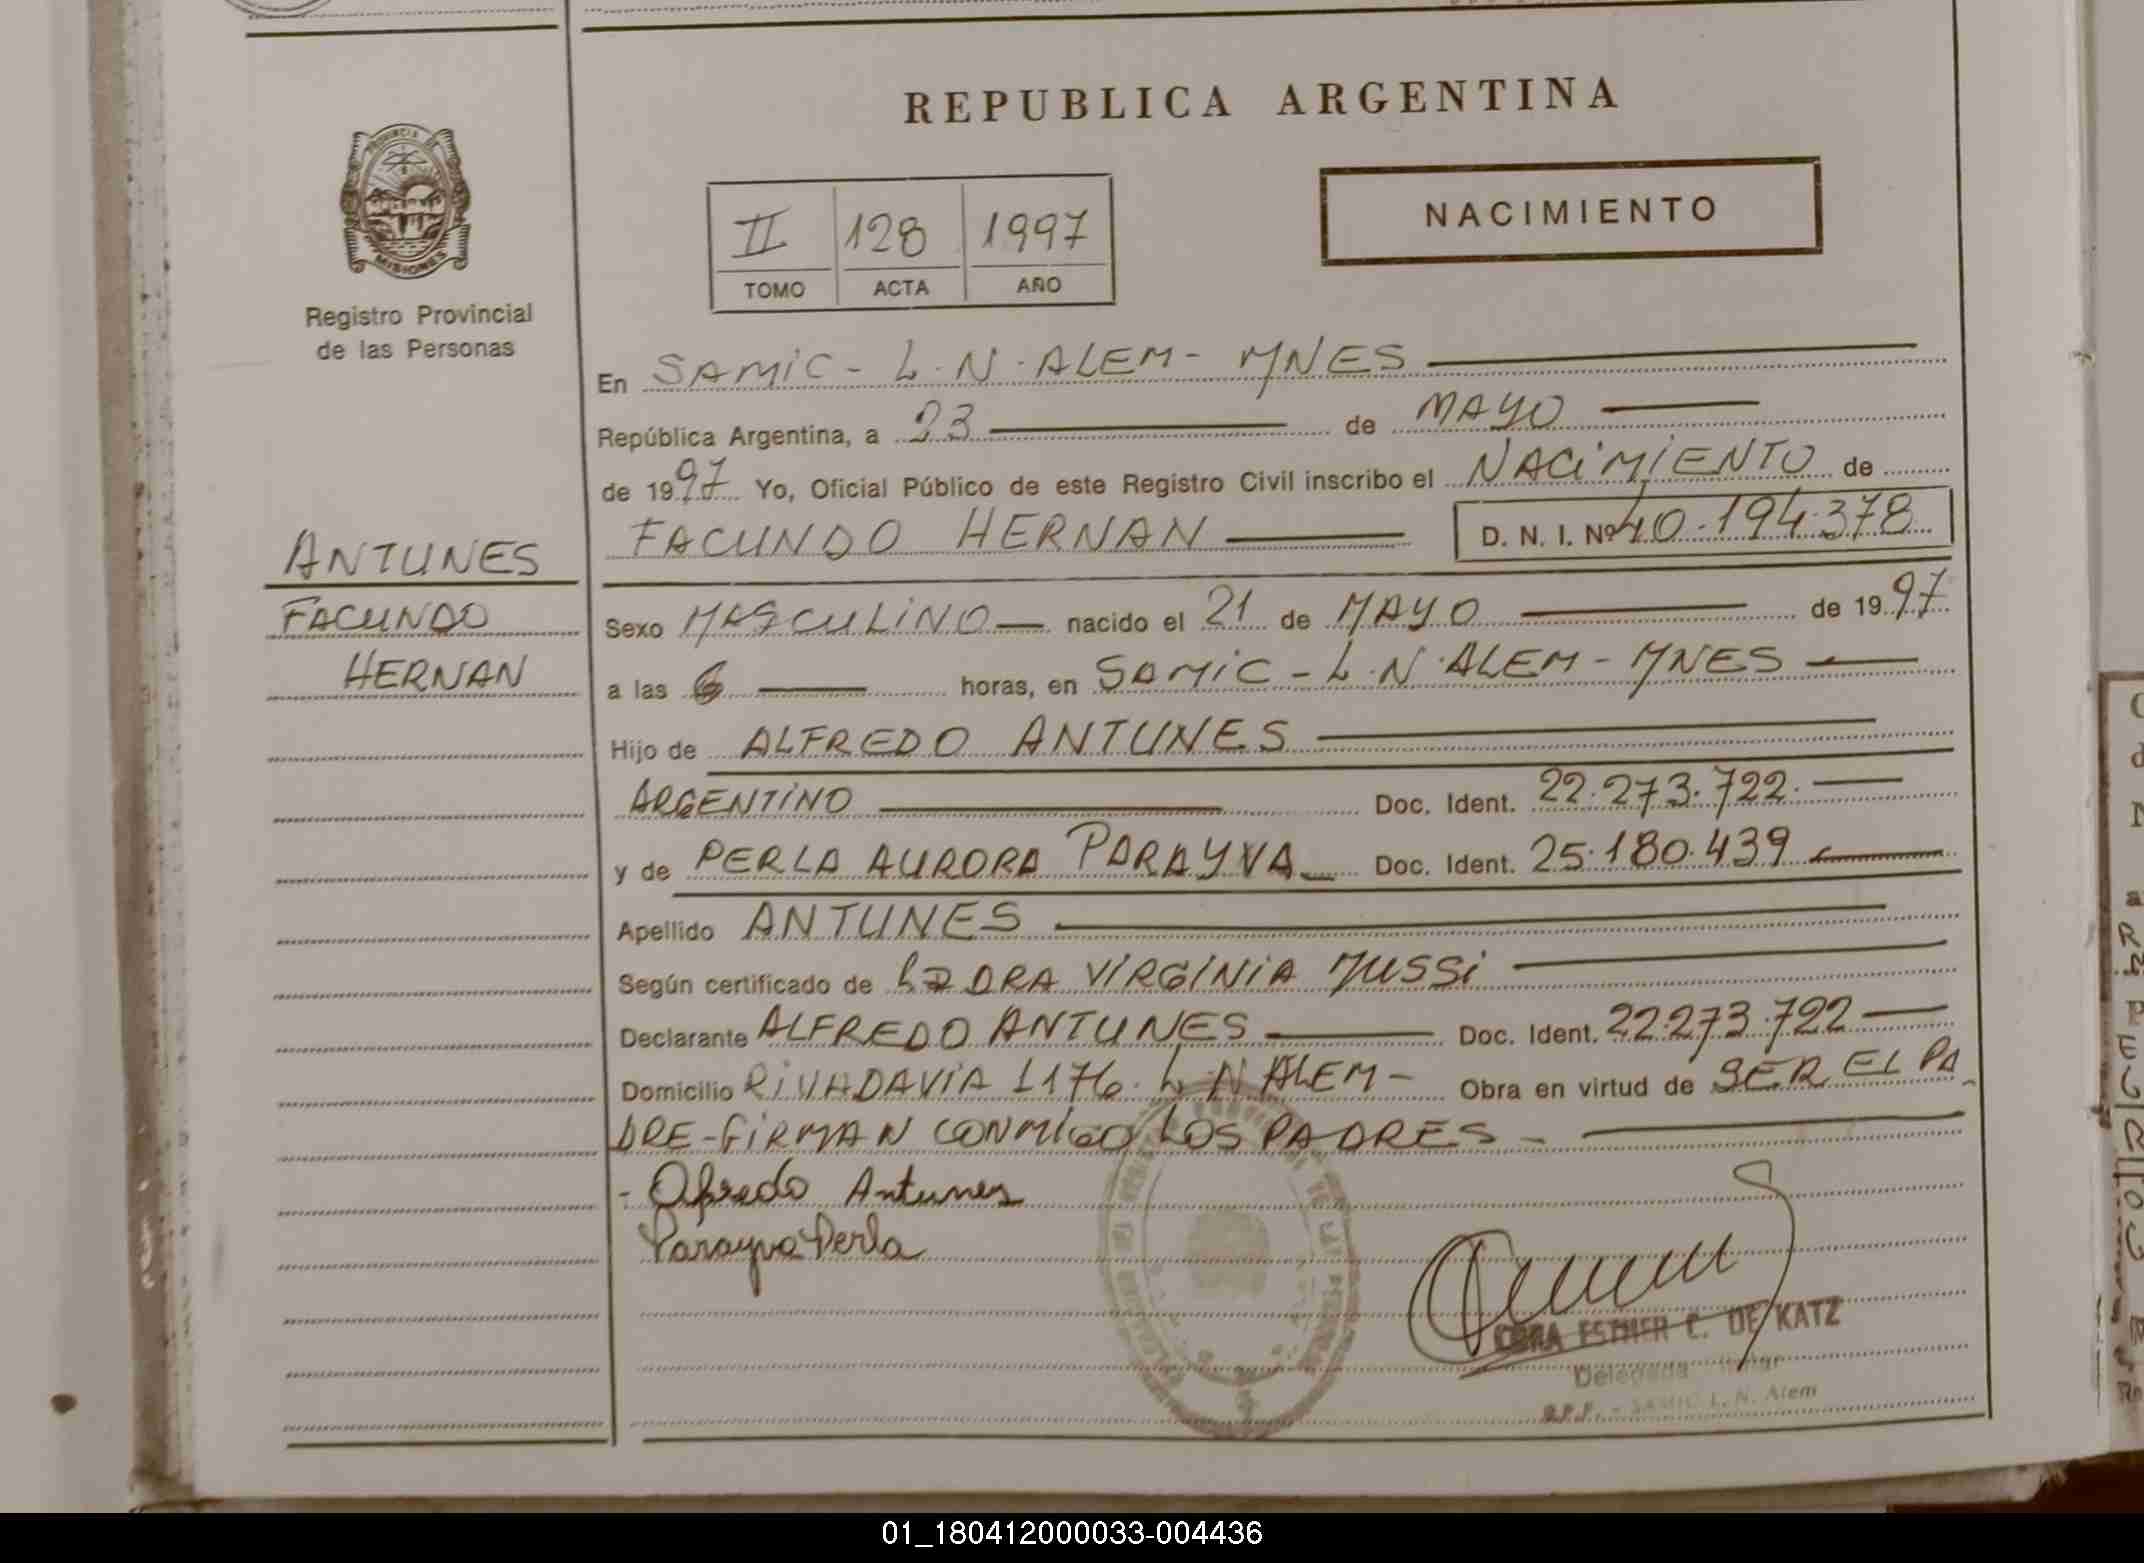 REPUBLICA ARGENTINA
PROVINCIA DE
MISIONES
Registro Provincial
de las Personas
II 128 1997
TOMO ACTA AÑO
NACIMIENTO
En SAMIC - L.N. ALEM - MNES
República Argentina, a 23 de MAYO
de 1997 Yo, Oficial Público de este Registro Civil inscribo el NACIMIENTO de
FACUNDO HERNAN D. N. I. Nº 40.194.378
ANTUNES
FACUNDO
HERNAN
Sexo MASCULINO nacido el 21 de MAYO de 1997
a las 6 horas, en SAMIC - L.N. ALEM - MNES
Hijo de ALFREDO ANTUNES
ARGENTINO Doc. Ident. 22.273.722.
y de PERLA AURORA PARAYVA Doc. Ident. 25.180.439
Apellido ANTUNES
Según certificado de DRA VIRGINIA MUSSI
Declarante ALFREDO ANTUNES Doc. Ident. 22.273.722
Domicilio RIVADAVIA 1176. L.N ALEM - Obra en virtud de SER EL PA
DRE - FIRMAN CONMIGO LOS PADRES -
- Alfredo Antunes
Parayva Perla
ESTHER C. DE KATZ
Delegada
SAMIC L. N. Alem
01_180412000033-004436